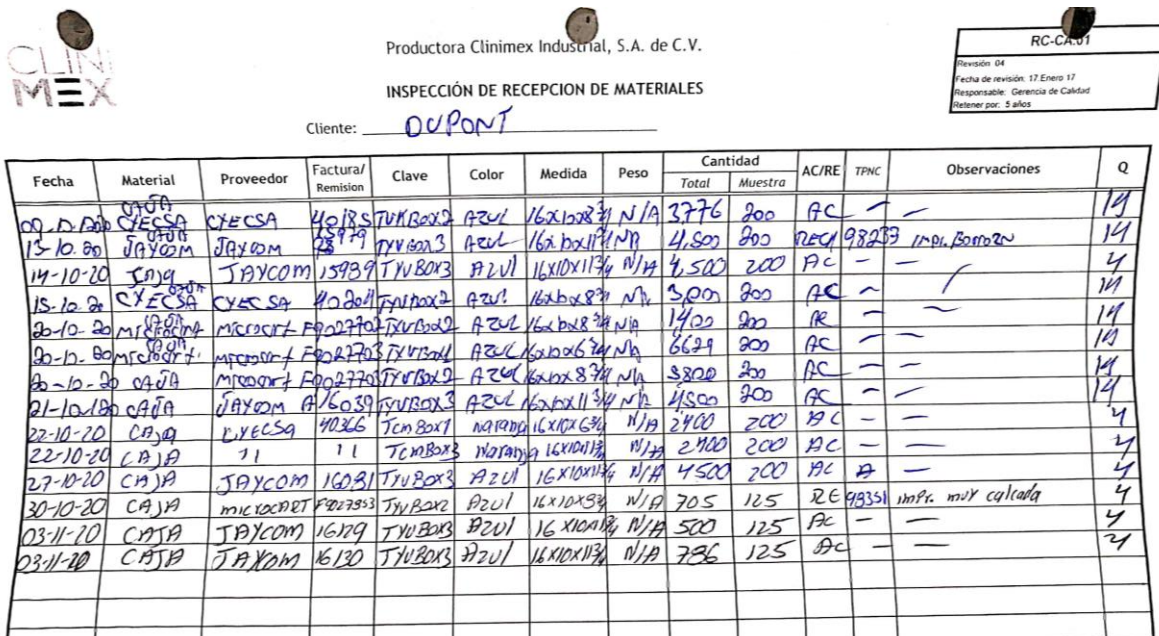 CLINI
MEX
Productora Clinimex Industrial, S.A. de C.V.
INSPECCIÓN DE RECEPCION DE MATERIALES
Cliente: DUPONT
RC-CA.01
Revisión 04
Fecha de revisión: 17.Enero 17
Responsable: Gerencia de Calidad
Retener por: 5 años
Fecha Material Proveedor Factura/Remision Clave Color Medida Peso Cantidad Total Muestra AC/RE TPNC Observaciones Q
CAJA CYECSA CYECSA 40185 AZUL 16x10x8¾ N/A 3776 200 AC - -
13-10-20 CAJA JAYCOM JAYCOM 15979 TYVBOX3 AZUL 16x10x11¾ NA 4,500 200 RECH 98233
14-10-20 Caja JAYCOM 15989 TYVBOX3 AZUl 16x10x11¾ N/A 4,500 200 AC - -
15-10-20 CAJA CYECSA CYECSA 40204 TYVBOX2 AZUL 16x10x8¾ NA 3,000 200 AC -
20-10-20 CAJA Microcart Microcart F9027702 TYVBOX2 AZUL 16x10x8¾ N/A 1400 200 - -
20-10-20 CAJA Microcart. Microcart F9027703 AZUL 16x10x6¾ NA 6629 200 AC - -
20-10-20 CAJA Microcart F9027703 TYVBOX2 AZUL 16x10x8¾ N/A 3800 200 AC - -
21-10-20 CAJA JAYCOM A16039 TYVBOX3 AZUL 16x10x11¾ NA 4,500 200 AC - -
22-10-20 CAJA CYECSA 40366 TcmBox1 naranja 16x10x6¾ N/A 2400 200 AC - -
22-10-20 CAJA 11 11 TcmBox3 Naranja 16x10x11¾ N/A 2400 200 AC - -
27-10-20 CAJA JAYCOM 16081 TYVBOX3 AZUl 16x10x11¾ N/A 4500 200 AC -
30-10-20 CAJA microcart F9027953 TyvBox2 Azul 16x10x8¾ N/A 705 125 RE 98351 impr. muy calcada
03-11-20 CAJA JAYCOM 16129 TYVBOX3 AZUl 16x10x11¾ N/A 500 125 AC - -
03-11-20 CAJA JAYCOM 16130 TYVBOX3 AZUl 16x10x11¾ N/A 786 125 AC - -